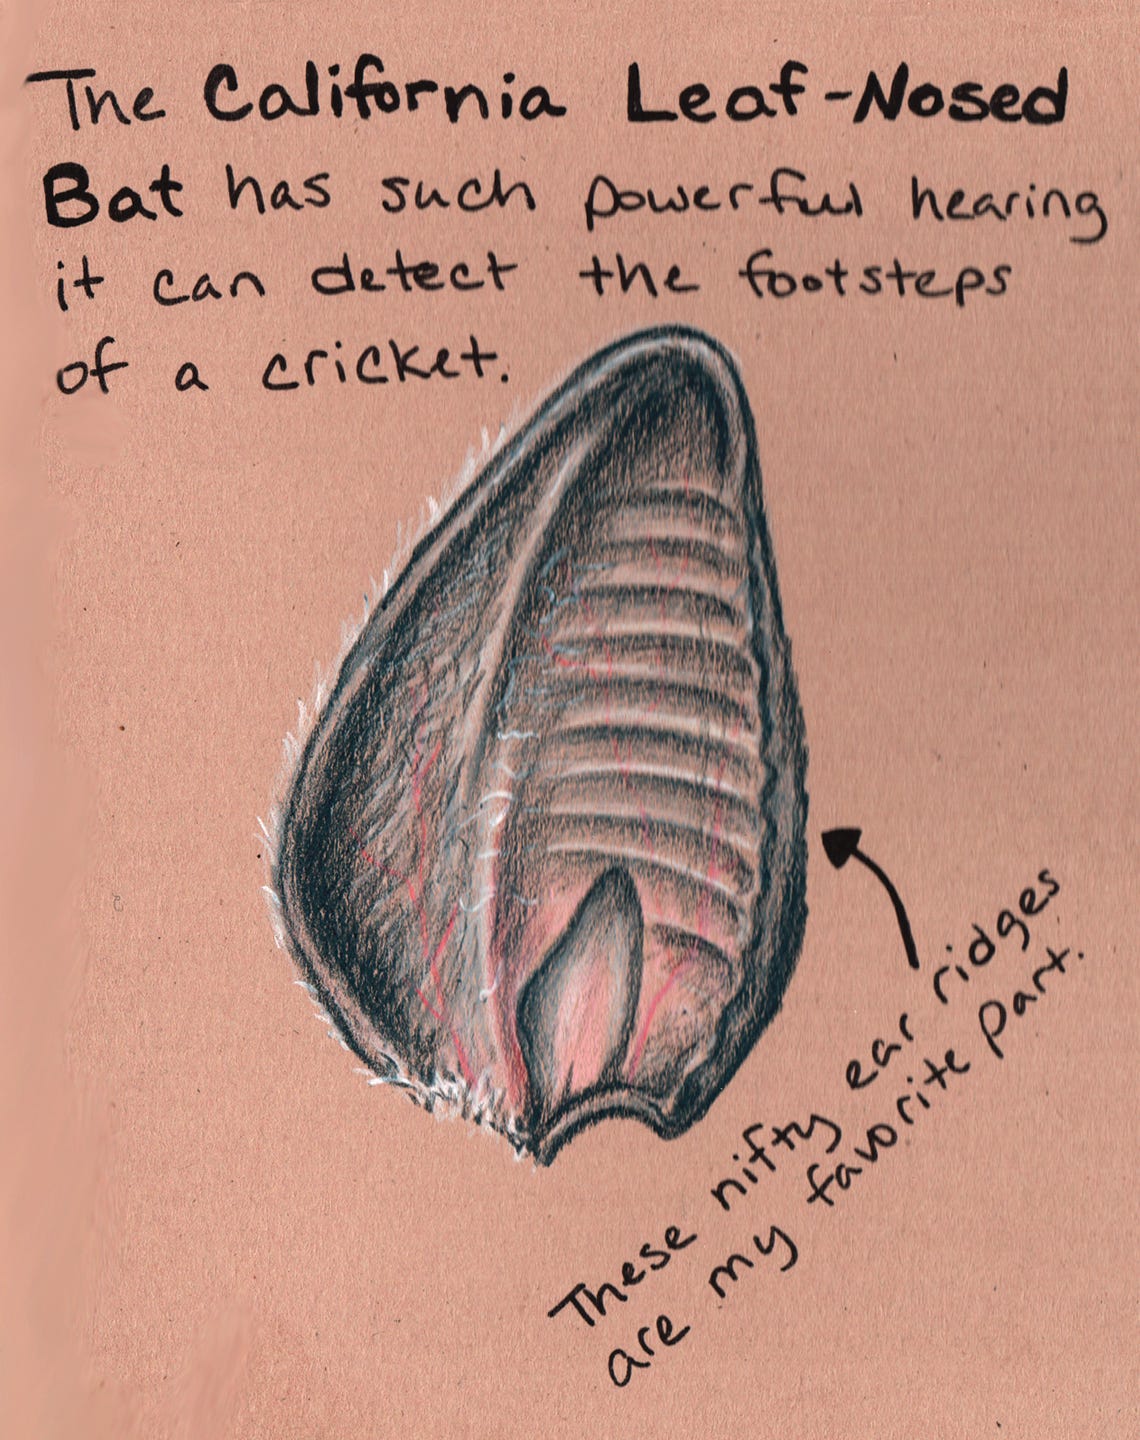 The California Leaf-Nosed
Bat has such powerful hearing
it can detect the footsteps
of a cricket.
These nifty ear ridges
are my favorite part.